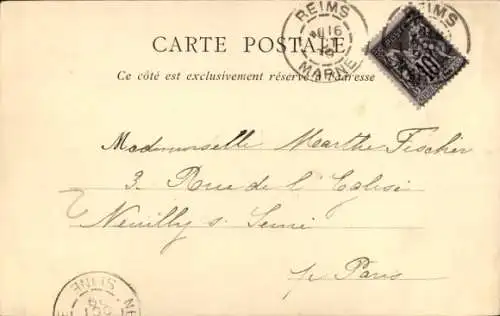 REIMS
MARNE
REIMS
10
CARTE POSTALE
Ce côté est exclusivement réservé à l'adresse
Mademoiselle Marthe Fischer
3. Rue de l'Eglise
Neuilly s. Seine
p. Paris
SEINE